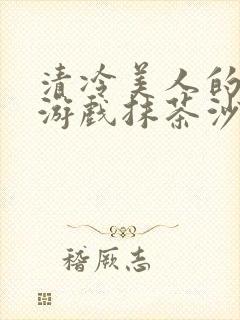 清冷美人的
游戏抹茶沙
稽厥志